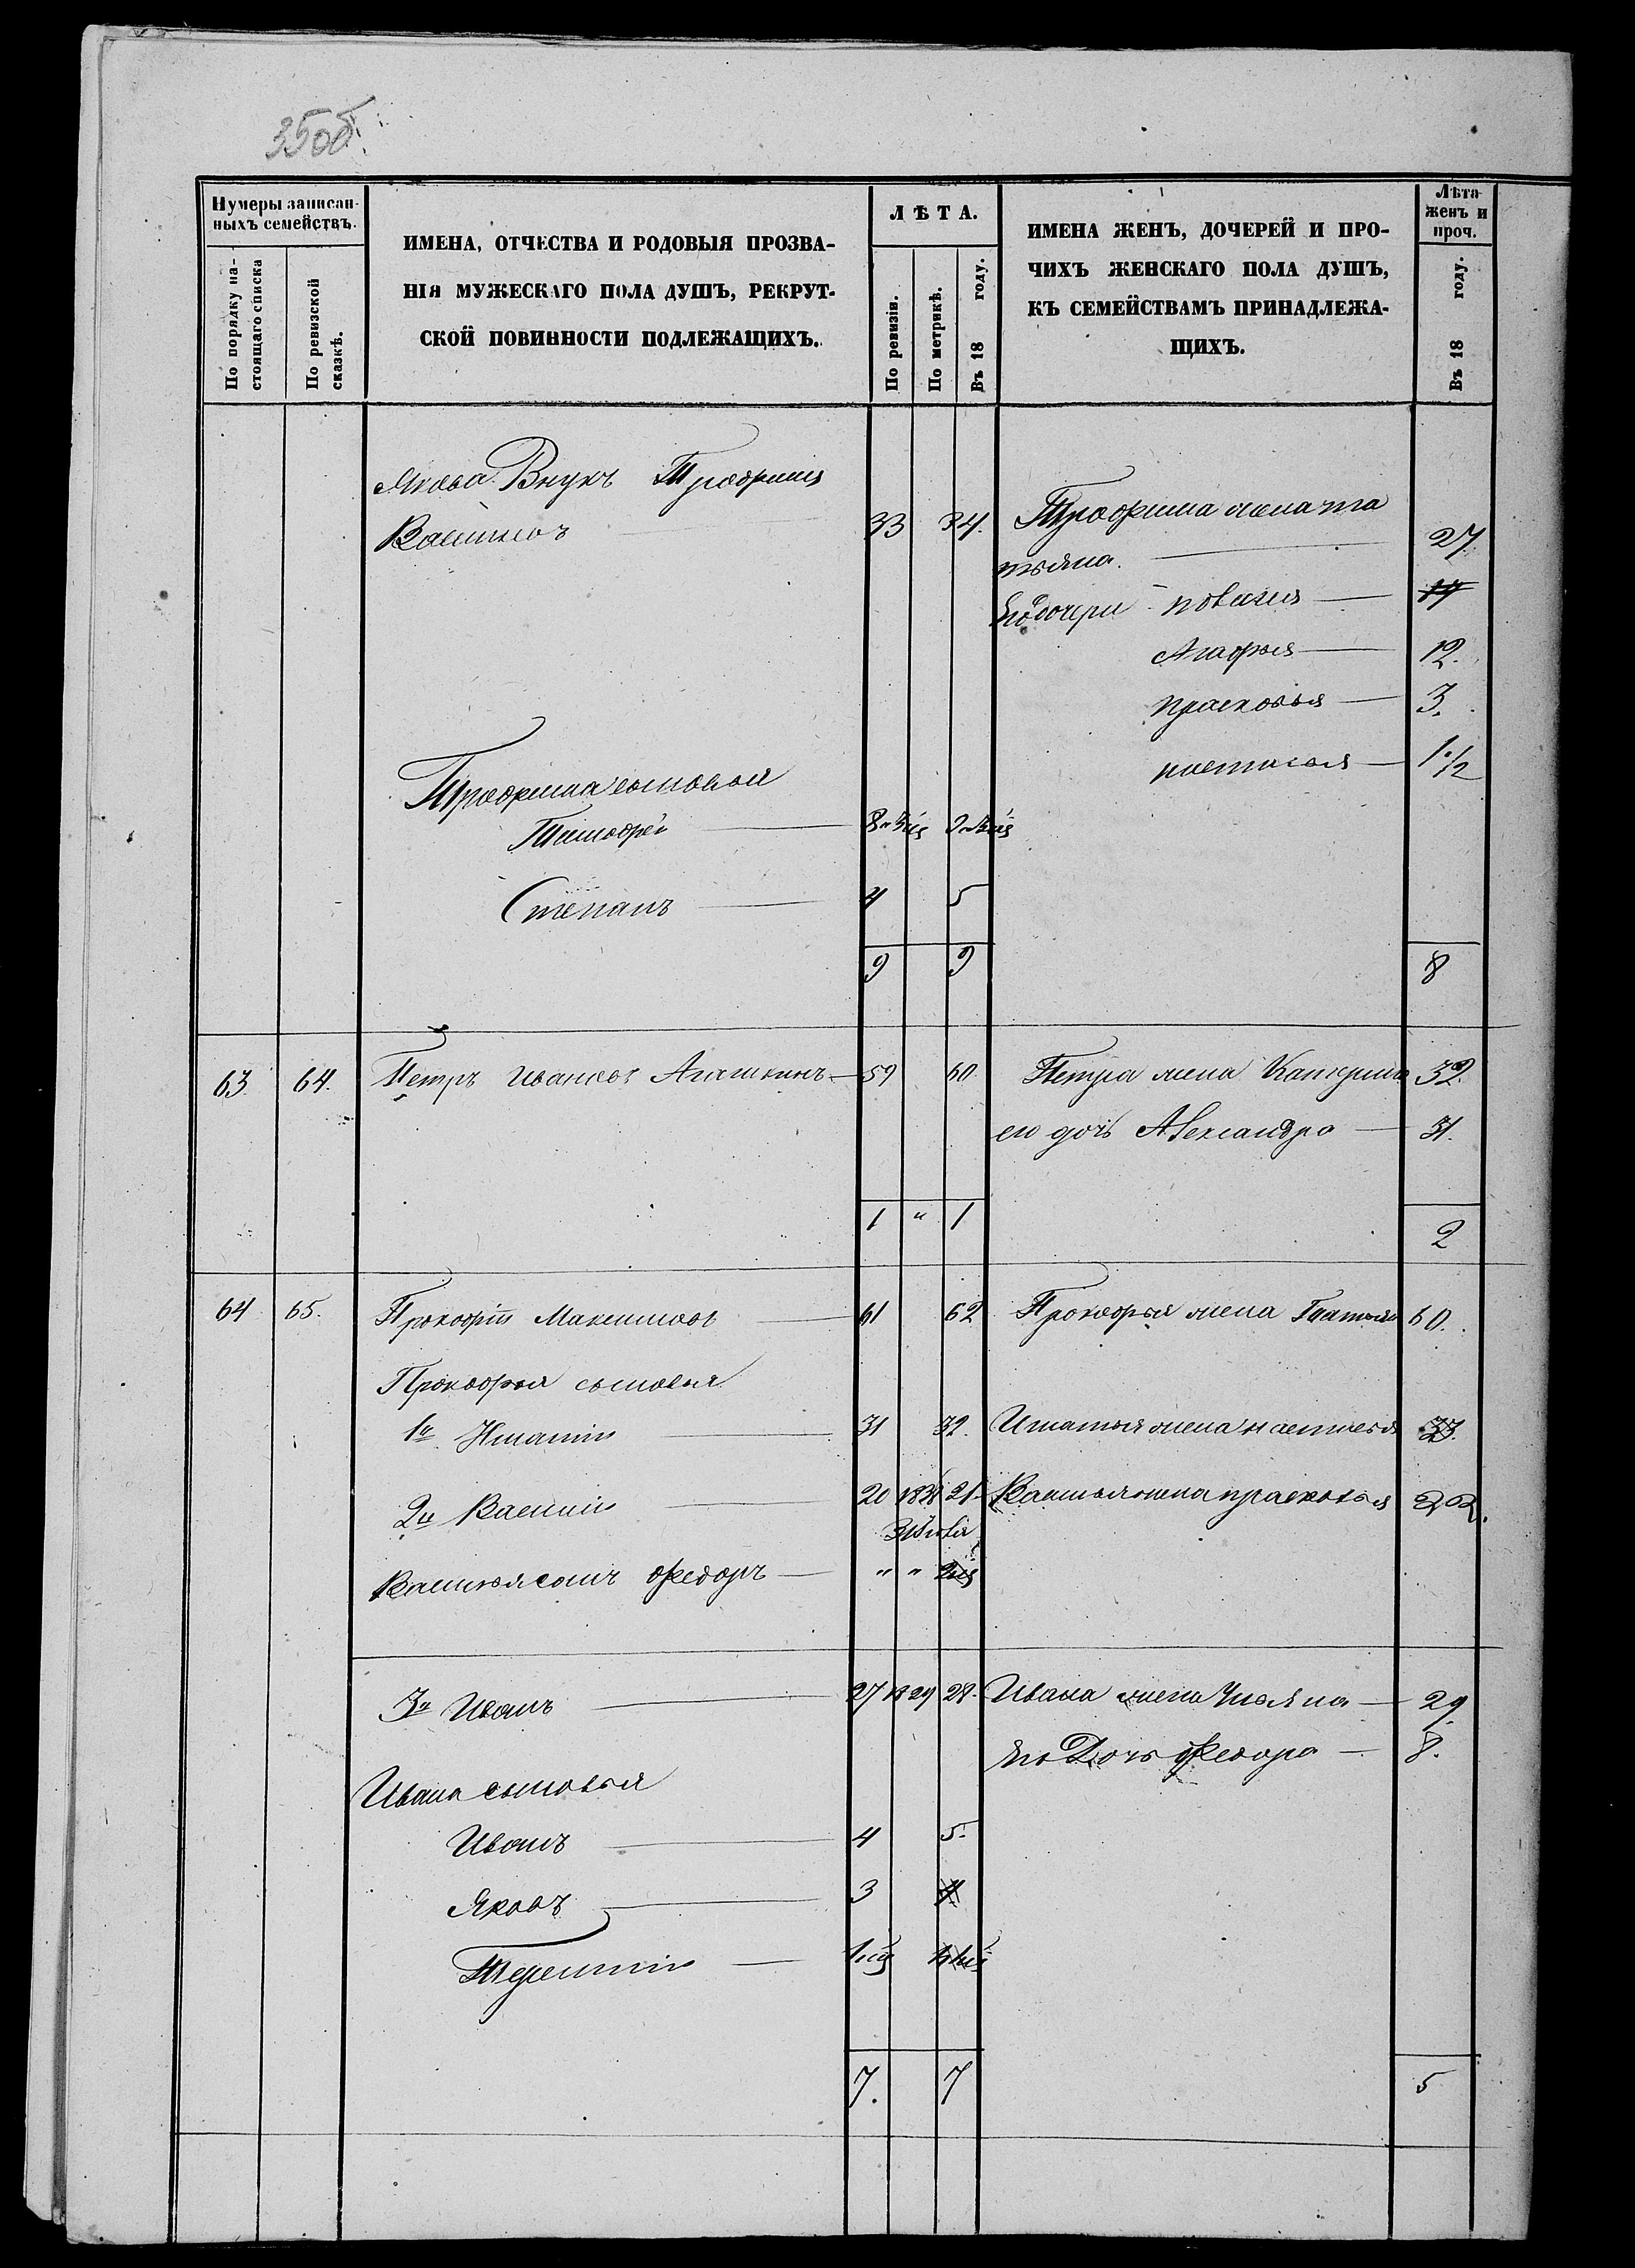 35об.
Нумеры записан-
ныхъ семействъ.
По порядку на-
стоящаго списка
По ревизской
сказкѣ.
ИМЕНА, ОТЧЕСТВА И РОДОВЫЯ ПРОЗВА-
НІЯ МУЖЕСКАГО ПОЛА ДУШЪ, РЕКРУТ-
СКОЙ ПОВИННОСТИ ПОДЛЕЖАЩИХЪ.
ЛѢТА.
По ревизіи.
По метрикѣ.
Въ 18 году.
ИМЕНА ЖЕНЪ, ДОЧЕРЕЙ И ПРО-
ЧИХЪ ЖЕНСКАГО ПОЛА ДУШЪ,
КЪ СЕМЕЙСТВАМЪ ПРИНАДЛЕЖА-
ЩИХЪ.
Лѣта
женъ и
проч.
Въ 18 году.
Якова Внукъ Трофимъ
Васильевъ 33 34. Трофима жена та
тьяна. 27
Его дочери
Агафья 12.
прасковья 3.
настасья 1 1/2
Трофима сыновья
Тимофей
Степанъ 4 5
9 9 8
63. 64. Петръ Ивановъ Агашкинъ 59 60. Петра жена Катерина 32.
его дочь Александра 31.
1 " 1 2
64 65. Прокофій Максимовъ 61 62 Прокофья жена Татьяна 60.
Прокофья сыновья
1й Игнатій 31 32. Игнатья жена настасья 33.
2й Василій 20 1836 21. Василья жена прасковья 22.
Василья сынъ Федоръ " "
3й Иванъ 27 1829 28. Ивана жена Ульяна 29
Его Дочь Федора 8.
Ивана сыновья
Иванъ 4 5.
Яковъ 3 4
Терентій
7. 7 5